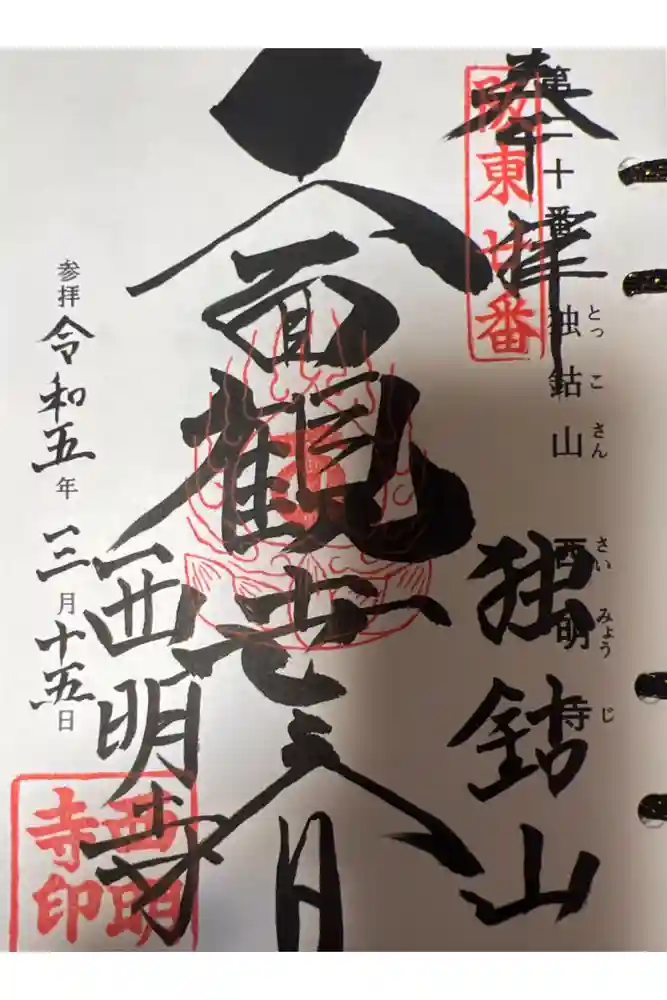 第二十番
独鈷山 西明寺
とっこさん さいみょうじ
奉拝
阪東廿番
独鈷山
面観世音
西明寺
参拝 令和五年三月十五日
西明寺印